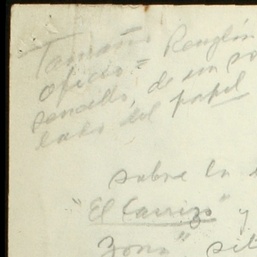 Tamaño Renglón
oficio =
sencillo, de un so
lado del papel
sobre la
"El Carrizo" y
Zona" sit